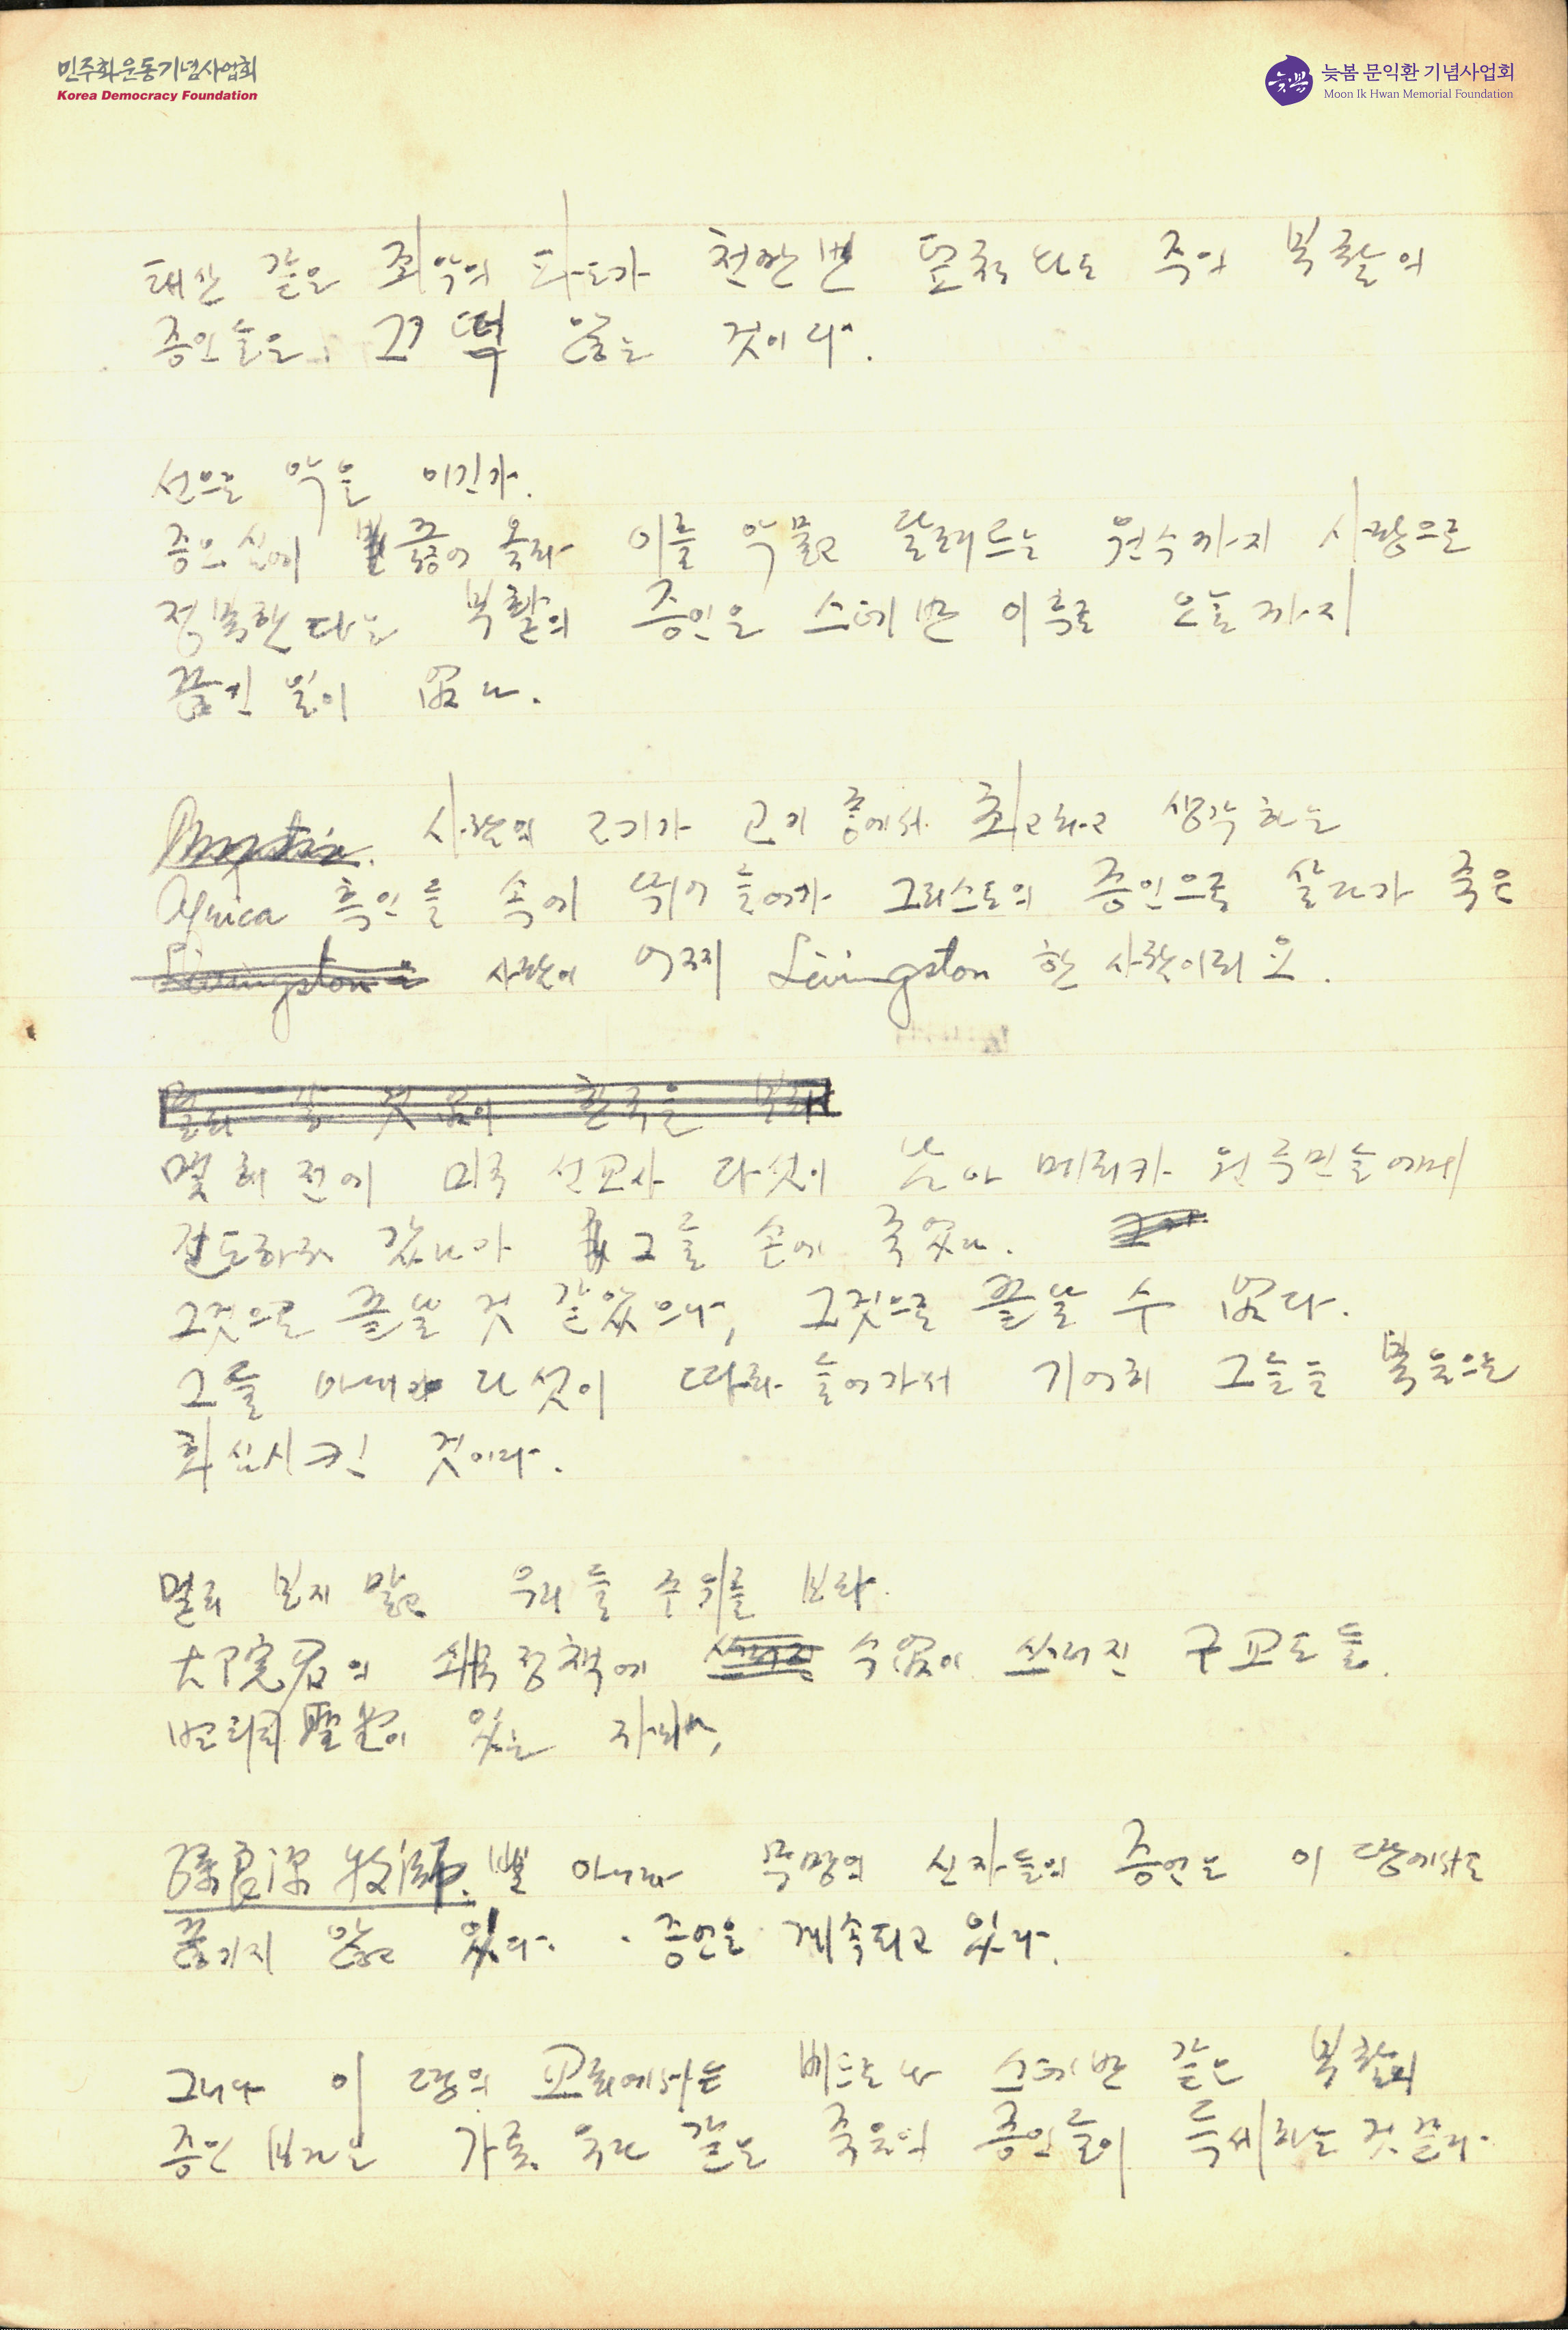 민주화운동기념사업회
Korea Democracy Foundation
늦봄
늦봄 문익환 기념사업회
Moon Ik Hwan Memorial Foundation
태산 같은 죄악의 파도가 천만번 덮쳐와도 주의 부활의
증인들은 끄떡 않는 것이다.
선으로 악을 이긴다.
증오심에 끓어 올라 이를 악물고 달려드는 원수까지 사랑으로
정복한다는 부활의 증인은 스데반 이후로 오늘까지
끊긴 일이 없다.
사람의 고기가 고기 중에서 최고라고 생각하는
Africa 흑인들 속에 뛰어 들어가 그리스도의 증인으로 살다가 죽은
Livingston 사람이 어찌 Livingston 한 사람이리요.
멀리 갈 것 없이 한국을
몇 해 전에 미국 선교사 다섯이 남아메리카 원주민들에게
전도하러 갔다가 그들 손에 죽었다.
그것으로 끝날 것 같았으나, 그것으로 끝날 수 없다.
그들 아내 다섯이 따라 들어가서 기어히 그들을 복음으로
회심시킨 것이다.
멀리 보지 말고 우리들 주위를 보라.
大院君의 쇄국정책에 쓰러진 수없이 쓰러진 구교도들.
이 있는 자리,
孫良源 牧師. 뿐 아니라 무명의 신자들의 증언은 이 땅에서도
끊기지 않고 있다. 증언은 계속되고 있다.
그러나 이 땅의 교회에서는 베드로나 스데반 같은 부활의
증인 보다는 가룟 유다 같은 죽음의 증인들이 득세하는 것 같다.